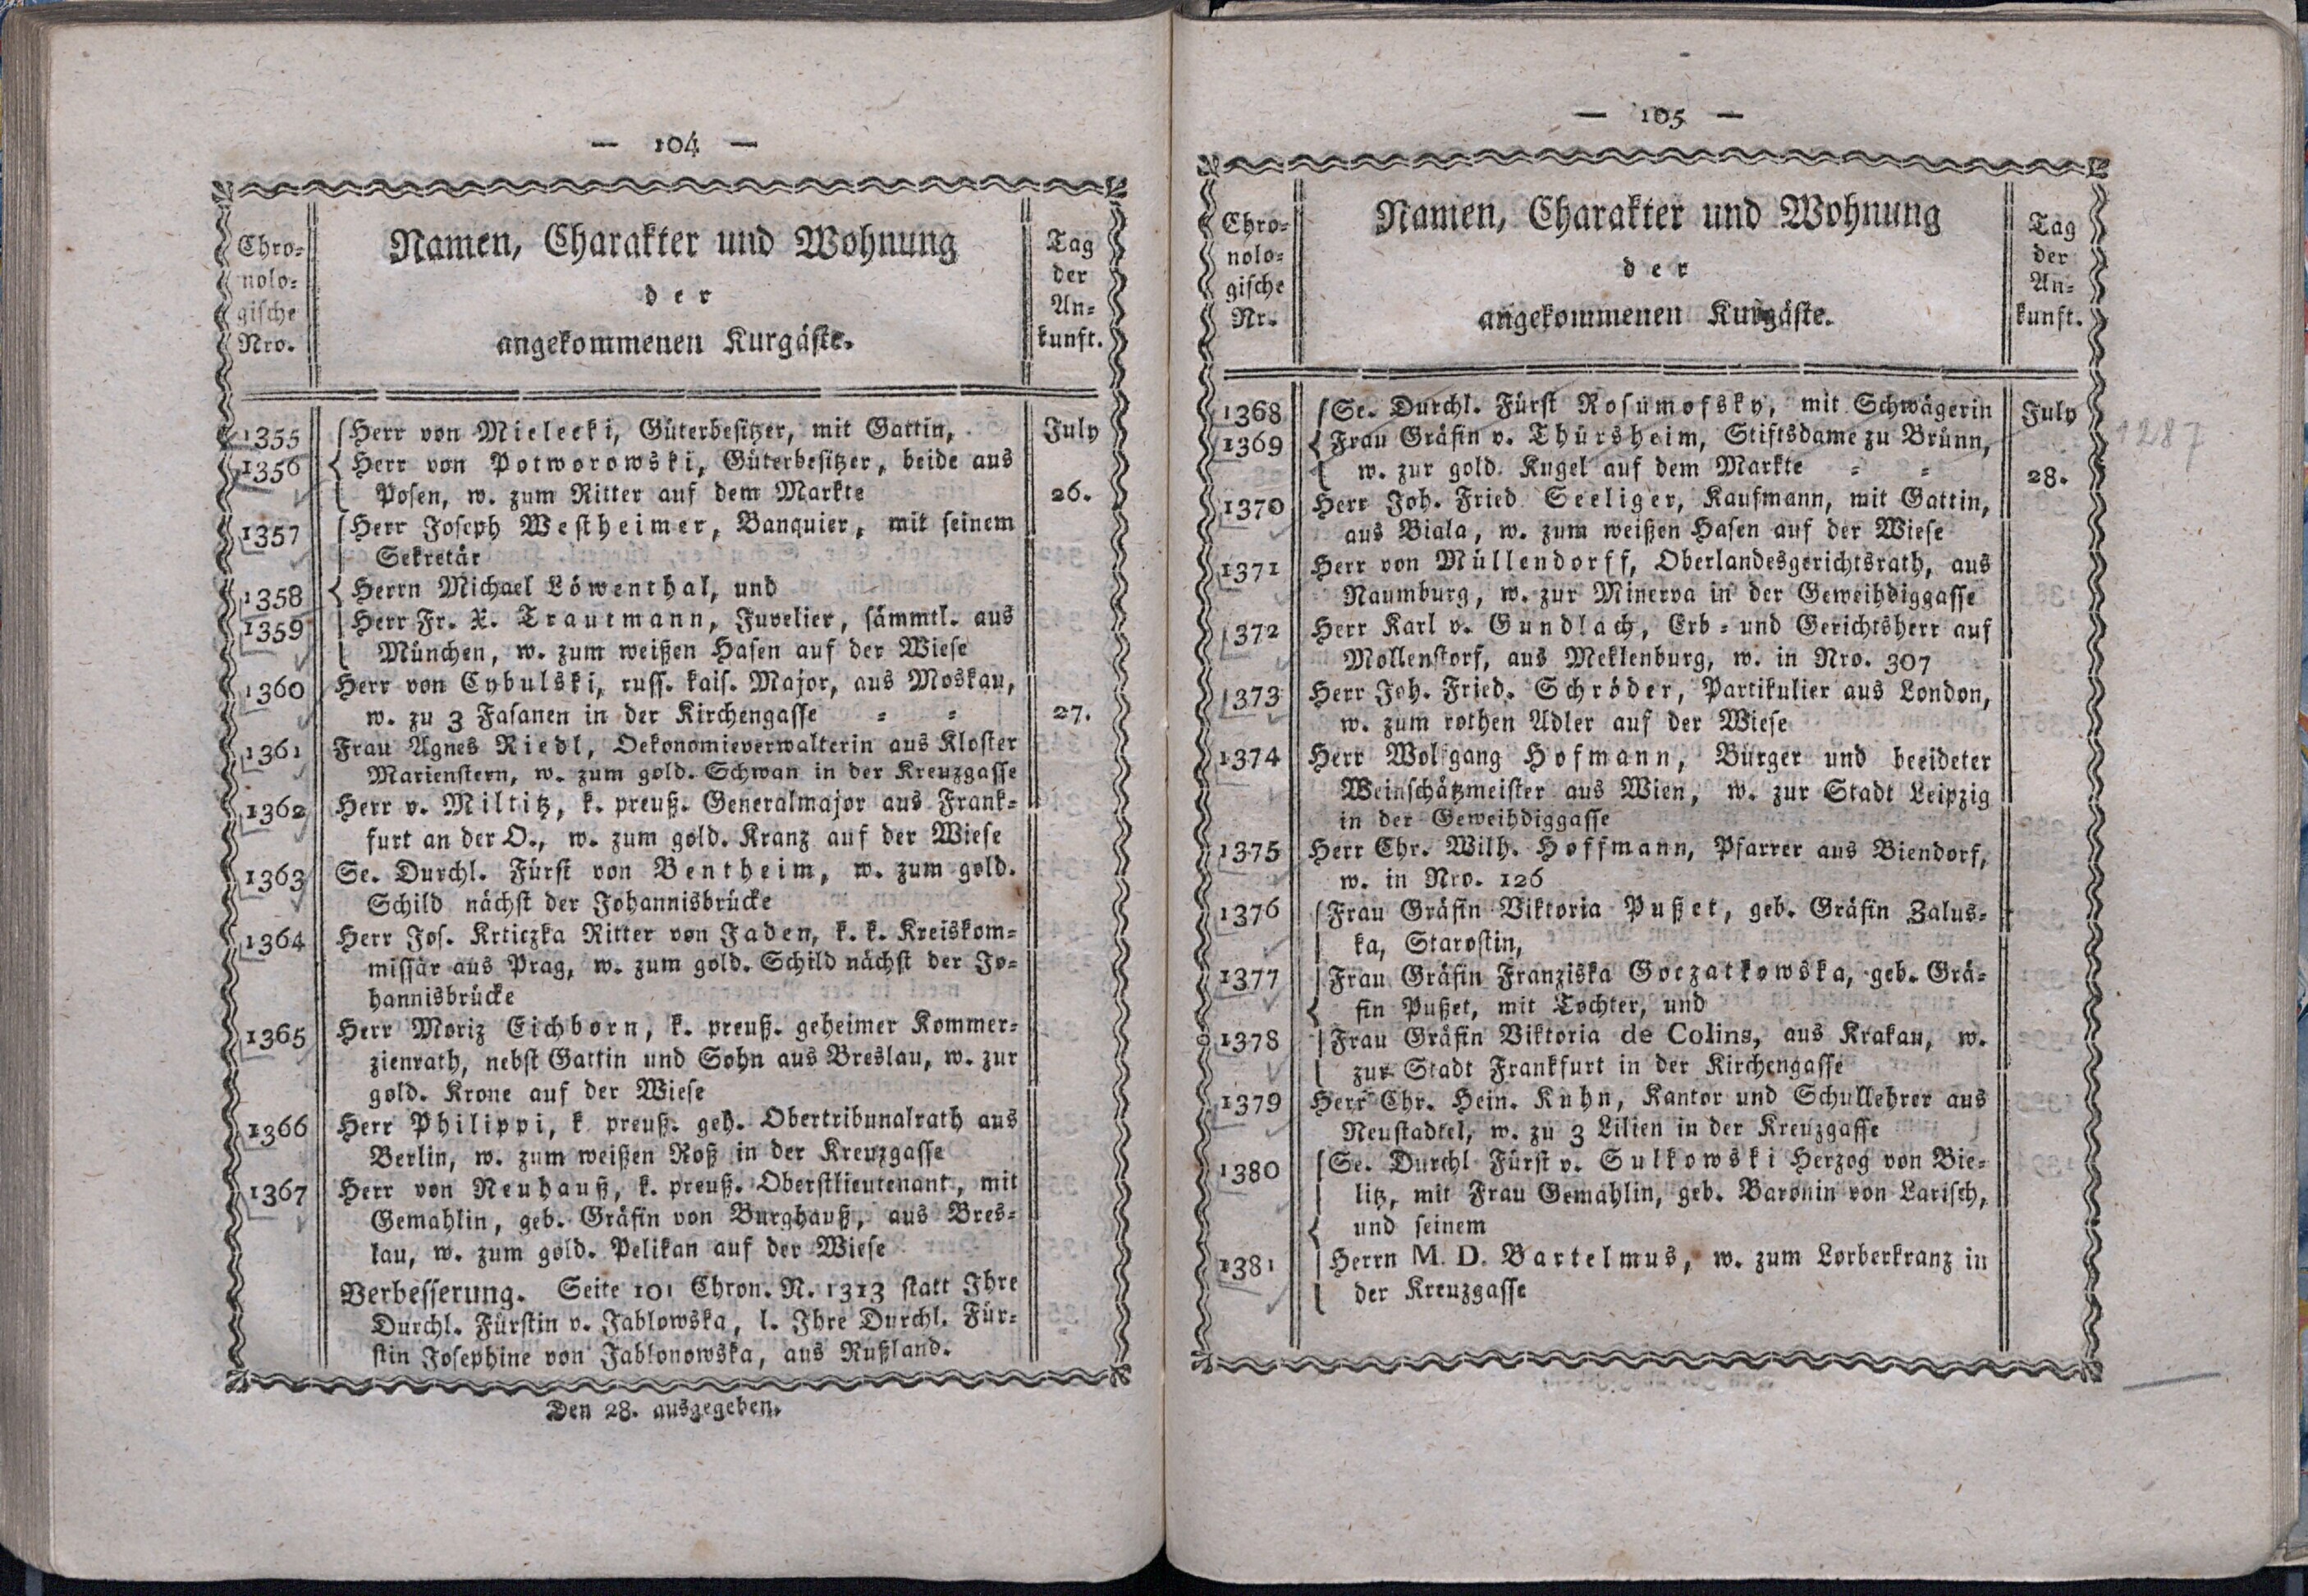 — 104 —
Chro-
nolo-
gische
Nro.
Namen, Charakter und Wohnung
der
angekommenen Kurgäste.
Tag
der
An-
kunft.
1355 Herr von Mielecki, Güterbesitzer, mit Gattin, July
1356 Herr von Potworowski, Güterbesitzer, beide aus
Posen, w. zum Ritter auf dem Markte 26.
1357 Herr Joseph Westheimer, Banquier, mit seinem
Sekretär
1358 Herrn Michael Löwenthal, und
1359 Herr Fr. X. Trautmann, Juvelier, sämmtl. aus
München, w. zum weißen Hasen auf der Wiese
1360 Herr von Cybulski, russ. kais. Major, aus Moskau,
w. zu 3 Fasanen in der Kirchengasse - - 27.
1361 Frau Agnes Riedl, Oekonomieverwalterin aus Kloster
Marienstern, w. zum gold. Schwan in der Kreuzgasse
1362 Herr v. Miltitz, k. preuß. Generalmajor aus Frank-
furt an der O., w. zum gold. Kranz auf der Wiese
1363 Se. Durchl. Fürst von Bentheim, w. zum gold.
Schild nächst der Johannisbrücke
1364 Herr Jos. Krticzka Ritter von Jaden, k. k. Kreiskom-
missär aus Prag, w. zum gold. Schild nächst der Jo-
hannisbrücke
1365 Herr Moriz Eichborn, k. preuß. geheimer Kommer-
zienrath, nebst Gattin und Sohn aus Breslau, w. zur
gold. Krone auf der Wiese
1366 Herr Philippi, k preuß. geh. Obertribunalrath aus
Berlin, w. zum weißen Roß in der Kreuzgasse
1367 Herr von Neuhauß, k. preuß. Oberstlieutenant, mit
Gemahlin, geb. Gräfin von Burghauß, aus Bres-
lau, w. zum gold. Pelikan auf der Wiese
Verbesserung. Seite 101 Chron. N. 1313 statt Ihre
Durchl. Fürstin v. Jablowska, l. Ihre Durchl. Für-
stin Josephine von Jablonowska, aus Rußland.
Den 28. ausgegeben.
— 105 —
Chro-
nolo-
gische
Nr.
Namen, Charakter und Wohnung
der
angekommenen Kurgäste.
Tag
der
An-
kunft.
1368 Se. Durchl. Fürst Rosumofsky, mit Schwägerin July
1369 Frau Gräfin v. Thürsheim, Stiftsdame zu Brünn, 1287
w. zur gold. Kugel auf dem Markte - - 28.
1370 Herr Joh. Fried Seeliger, Kaufmann, mit Gattin,
aus Biala, w. zum weißen Hasen auf der Wiese
1371 Herr von Müllendorff, Oberlandesgerichtsrath, aus
Naumburg, w. zur Minerva in der Geweihdiggasse
1372 Herr Karl v. Gundlach, Erb- und Gerichtsherr auf
Mollenstorf, aus Meklenburg, w. in Nro. 307
1373 Herr Joh. Fried. Schröder, Partikulier aus London,
w. zum rothen Adler auf der Wiese
1374 Herr Wolfgang Hofmann, Bürger und beeideter
Weinschätzmeister aus Wien, w. zur Stadt Leipzig
in der Geweihdiggasse
1375 Herr Chr. Wilh. Hoffmann, Pfarrer aus Biendorf,
w. in Nro. 126
1376 Frau Gräfin Viktoria Pußet, geb. Gräfin Zalus-
ka, Starostin,
1377 Frau Gräfin Franziska Goczatkowska, geb. Grä-
fin Pußet, mit Tochter, und
1378 Frau Gräfin Viktoria de Colins, aus Krakau, w.
zur Stadt Frankfurt in der Kirchengasse
1379 Herr Chr. Hein. Kuhn, Kantor und Schullehrer aus
Neustadtel, w. zu 3 Lilien in der Kreuzgasse
1380 Se. Durchl Fürst v. Sulkowski Herzog von Bie-
litz, mit Frau Gemahlin, geb. Baronin von Larisch,
und seinem
1381 Herrn M. D. Bartelmus, w. zum Lorberkranz in
der Kreuzgasse